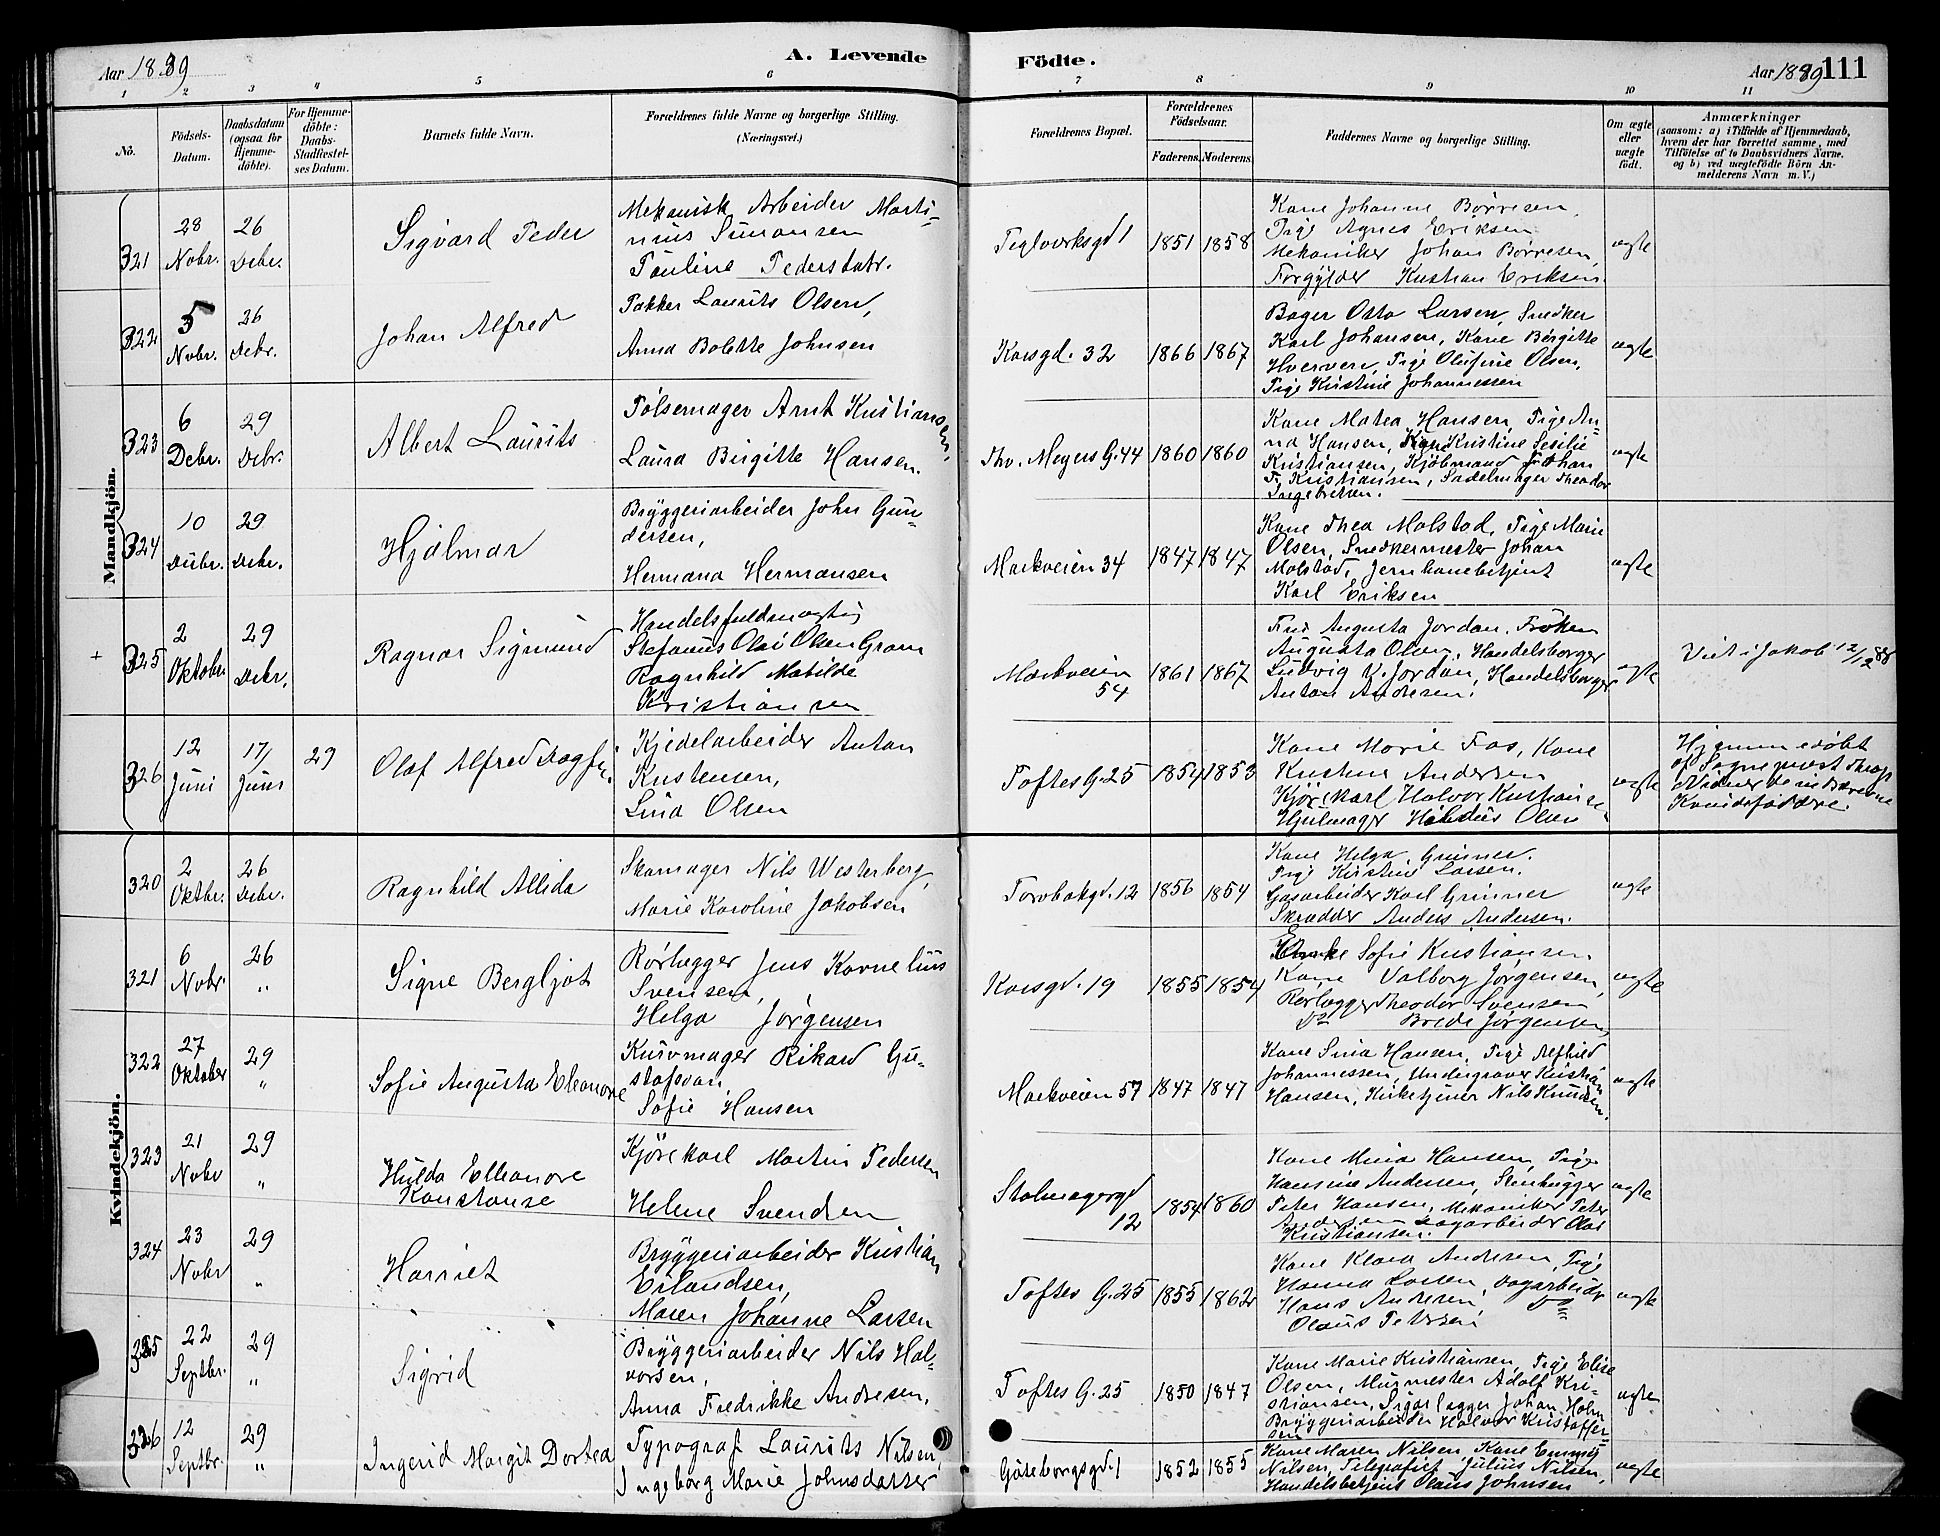 Aar 1889
A. Levende
Födte.
Aar 1889
111
1 2 3 4 5 6 7 8 9 10 11
No.
Födsels-
Datum.
Daabsdatum
(ogsaa for
Hjemme-
döbte).
For Hjemme-
döbte:
Daabs-
Stadfæstel-
ses Datum.
Barnets fulde Navn.
Forældrenes fulde Navne og borgerlige Stilling.
(Næringsvei.)
Forældrenes Bopæl.
Forældrenes
Födselsaar.
Faderens. Moderens.
Faddernes Navne og borgerlige Stilling.
Om ægte
eller
uægte
födt.
Anmærkninger
(saasom: a) i Tilfælde af Hjemmedaab,
hvem der har forrettet samme, med
Tilföielse af to Daabsvidners Navne.
og b) ved uægtefödte Börn An-
melderens Navn m. V.)
Mandkjön.
321
28
Nobr.
26
Debr.
Sigvard Peder
Mekanisk Arbeider Marti-
nius Simonsen
Pauline Pedersdatr.
Teglverksgd 1
1851 1858
Kone Johanne Børresen,
Pige Agnes Eriksen
Mekaniker Johan Børresen,
Forgylder Kristian Eriksen.
ægte
322
5
Nobr.
26
Debr.
Johan Alfred
Pakker Laurits Olsen,
Anna Bolette Johnsen
Korsgd. 32
1866 1867
Bager Otto Larsen, Snedker
Karl Johansen, Kone Bergitte
Hverven, Pige Olufine Olsen,
Pige Kristine Johannessen
ægte
323
6
Debr.
29
Debr.
Albert Laurits
Pølsemager Arnt Kristiansen,
Laura Birgitte Hansen.
Thv. Meyers G. 44
1860 1860
Kone Matea Hansen, Pige An-
na Hansen, Kone Kristine Sesilie
Kristiansen, Kjøbmand Johan
Fr. Kristiansen, Sadelmager Theodor
Ingebretsen.
ægte
324
10
Debr.
29
Debr.
Hjalmar
Bryggeriarbeider John Gun-
dersen,
Hermana Hermansen
Markveien 34
1847 1847
Kone Thea Molstad, Pige Marie
Olsen, Snedkermester Johan
Molstad, Jernbanebetjent
Karl Eriksen
ægte
+
325
2
Oktober
29
Debr.
Ragnar Sigmund
Handelsfuldmægtig
Stefanus Olai Olsen Gram
Ragnhild Matilde
Kristiansen
Markveien
54
1861 1867
Fru Augusta Jordan, Frøken
Augusta Olsen, Handelsborger
Ludvig V. Jordan, Handelsborger
Anton Andresen.
ægte
Viet i Jakob 12/12 88
326
12
Juni
17/
Juni
29
Olaf Alfred Dagfin
Kjedelarbeider Anton
Kristensen,
Lina Olsen
Toftes G. 25
1854 1853
Kone Marie Fos, Kone
Kristine Andersen
Kjørekarl Halvor Kristianse
Hjulmager Olsen
ægte
Hjemmedøbt
af Sogneprest
Vidner
Kvindefaddre.
Kvindekjön.
320
2
Oktbr.
26
Debr.
Ragnhild Allida
Skomager Nils Westerberg,
Marie Karoline Jakobsen
Torvbakgd. 12
1856 1854
Kone Helga Grinner.
Pige Kirstin Larsen.
Gasarbeider Karl Grinner
Skrædder Anders Andersen.
ægte
321
6
Nobr.
26
"
Signe Bergljot
Rørlægger Jens Kornelius
Svensen,
Helga Jørgensen
Korsgd. 19
1855 1854
Enke Sofie Kristiansen
Kone Valborg Jørgensen,
Rørlægger Theodor Svensen
Do Brede Jørgensen,
ægte
322
27
Oktober
29
"
Sofie Augusta Eleonore
Kurvmager Rikard Gu-
stafsson,
Sofie Hansen
Markveien 57
1847 1847
Kone Lina Hansen, Pige Alfhild
Johannessen, Undergraver Kristian
Hansen, Kirketjener Nils Knudsen.
ægte
323
21
Nobr
29
"
Hulda Elleanore
Konstanse
Kjørekarl Martin Pedersen
Helene Svendsen
Stolmagergd
12
1854 1860
Kone Mina Hansen, Pige
Hansine Andersen, Stenhugger
Peter Hansen, Mekaniker Peter
Andersen Dagarbeider Olaf
Kristiansen.
ægte
324
23
Nobr
29
"
Harriet
Bryggeriarbeider Kristian
Erlandsen,
Maren Johanne Larsen
Toftes G. 25
1855 1862
Kone Klara Andersen, Pige
Hanna Larsen, Dagarbeider
Hans Andersen, Do
Olaus Petersen
ægte
325
22
Septbr.
29
"
Sigrid
Bryggeriarbeider Nils Hal-
vorsen,
Anna Fredrikke Andresen,
Toftes G. 25
1850 1847
Kone Marie Kristiansen, Pige Elise
Olsen, Murmester Adolf Kri-
stiansen, Johan
Bryggeriarbeider Halvor Kristoffer-
sen
ægte
326
12
Septbr.
29
"
Ingerid Margit Dortea
Typograf Laurits Nilsen,
Ingeborg Marie Johnsdatter
Göteborgsgd. 1
1852 1855
Kone Maren Nilsen, Kone Emmy
Nilsen, Telegrafist Julius Nilsen,
Handelsbetjent Olaus Johnsen
ægte